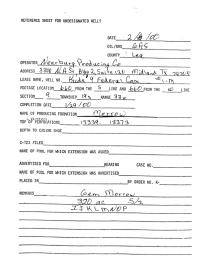 REFERENCE SHEET FOR UNDESIGNATED WELLS
DATE 2/8/00
OIL/GAS GAS
COUNTY Lea
OPERATOR Nearburg Producing Co
ADDRESS 3300 N A St, Bldg 2, Suite 120 Midland Tx 79705
LEASE NAME, WELL NO. 9 Federal Com #1-M
FOOTAGE LOCATION 660 FROM THE S LINE AND 660 FROM THE W LINE
SECTION 9 TOWNSHIP 19s RANGE 33e
COMPLETION DATE 1/20/00
NAME OF PRODUCING FORMATION Morrow
TOP OF PERFORATIONS 13338 13373
DEPTH TO CASING SHOE
C-123 FILED
NAME OF POOL FOR WHICH EXTENSION WAS ASKED
ADVERTISED FOR HEARING CASE NO.
NAME OF POOL FOR WHICH EXTENSION WAS ADVERTISED
PLACED IN BY ORDER NO. R-
REMARKS Gem Morrow
320 ac S/2
I J K L M N O P